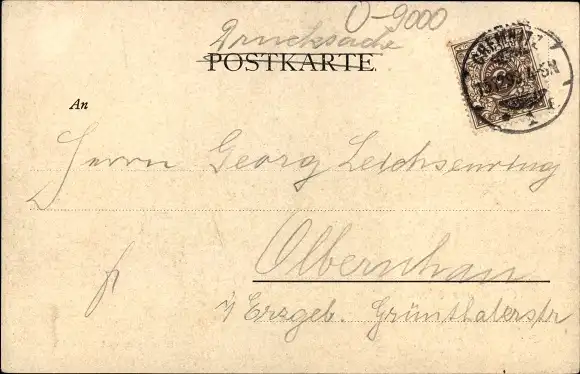 O-9000
Drucksache
POSTKARTE
CHEMNITZ
An
Herrn Georg Leichsenring
Olbernhau
i/ Erzgeb. Grünthalerstr